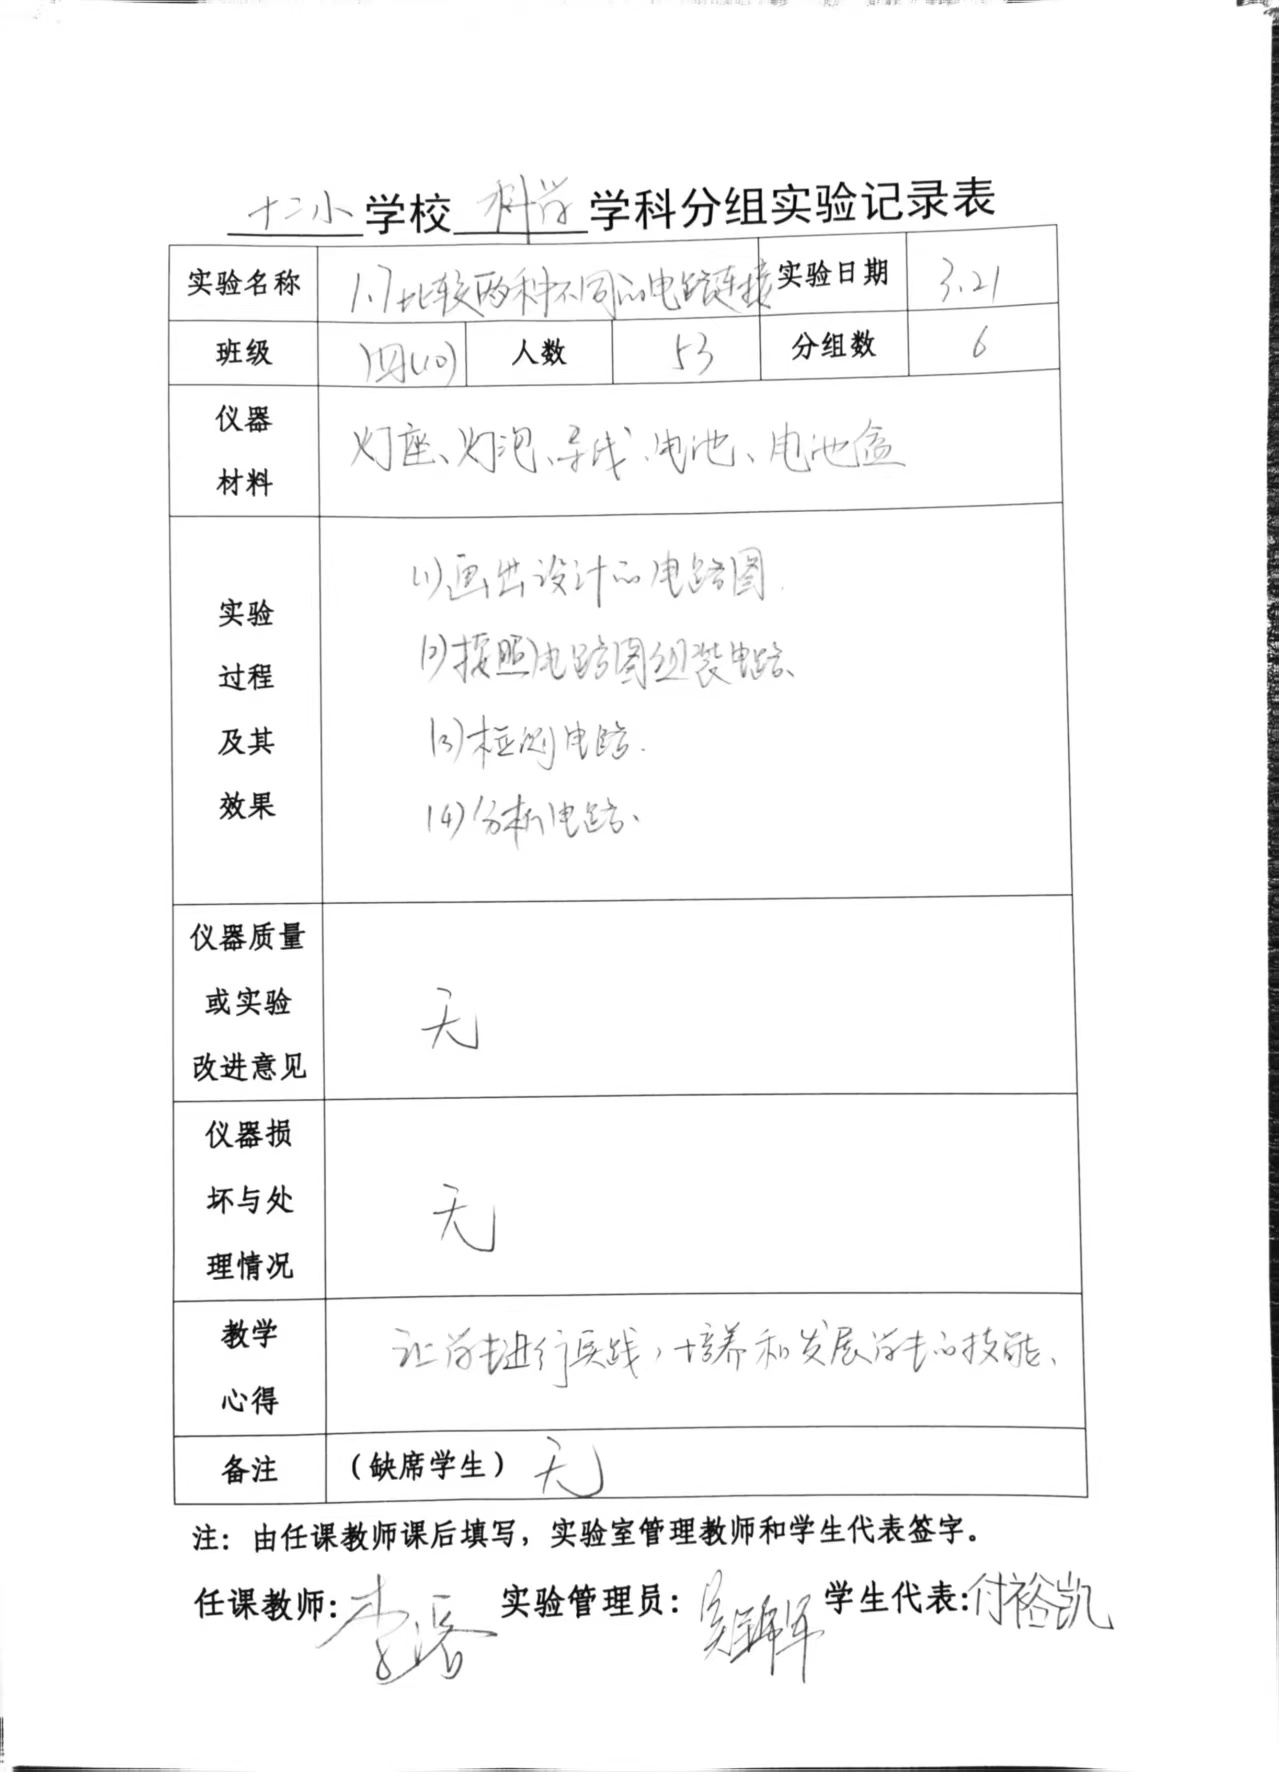 十二小学校科学学科分组实验记录表
实验名称 1.7比较两种不同的电路连接 实验日期 3.21
班级 四(10) 人数 53 分组数 6
仪器
材料
灯座、灯泡、导线、电池、电池盒
实验
过程
及其
效果
(1)画出设计的电路图.
(2)按照电路图组装电路、
(3)检测电路.
(4)分析电路、
仪器质量
或实验
改进意见
无
仪器损
坏与处
理情况
无
教学
心得
让学生进行实践，培养和发展学生的技能、
备注 （缺席学生）无
注：由任课教师课后填写，实验室管理教师和学生代表签字。
任课教师: 李 实验管理员: 学生代表:付裕凯